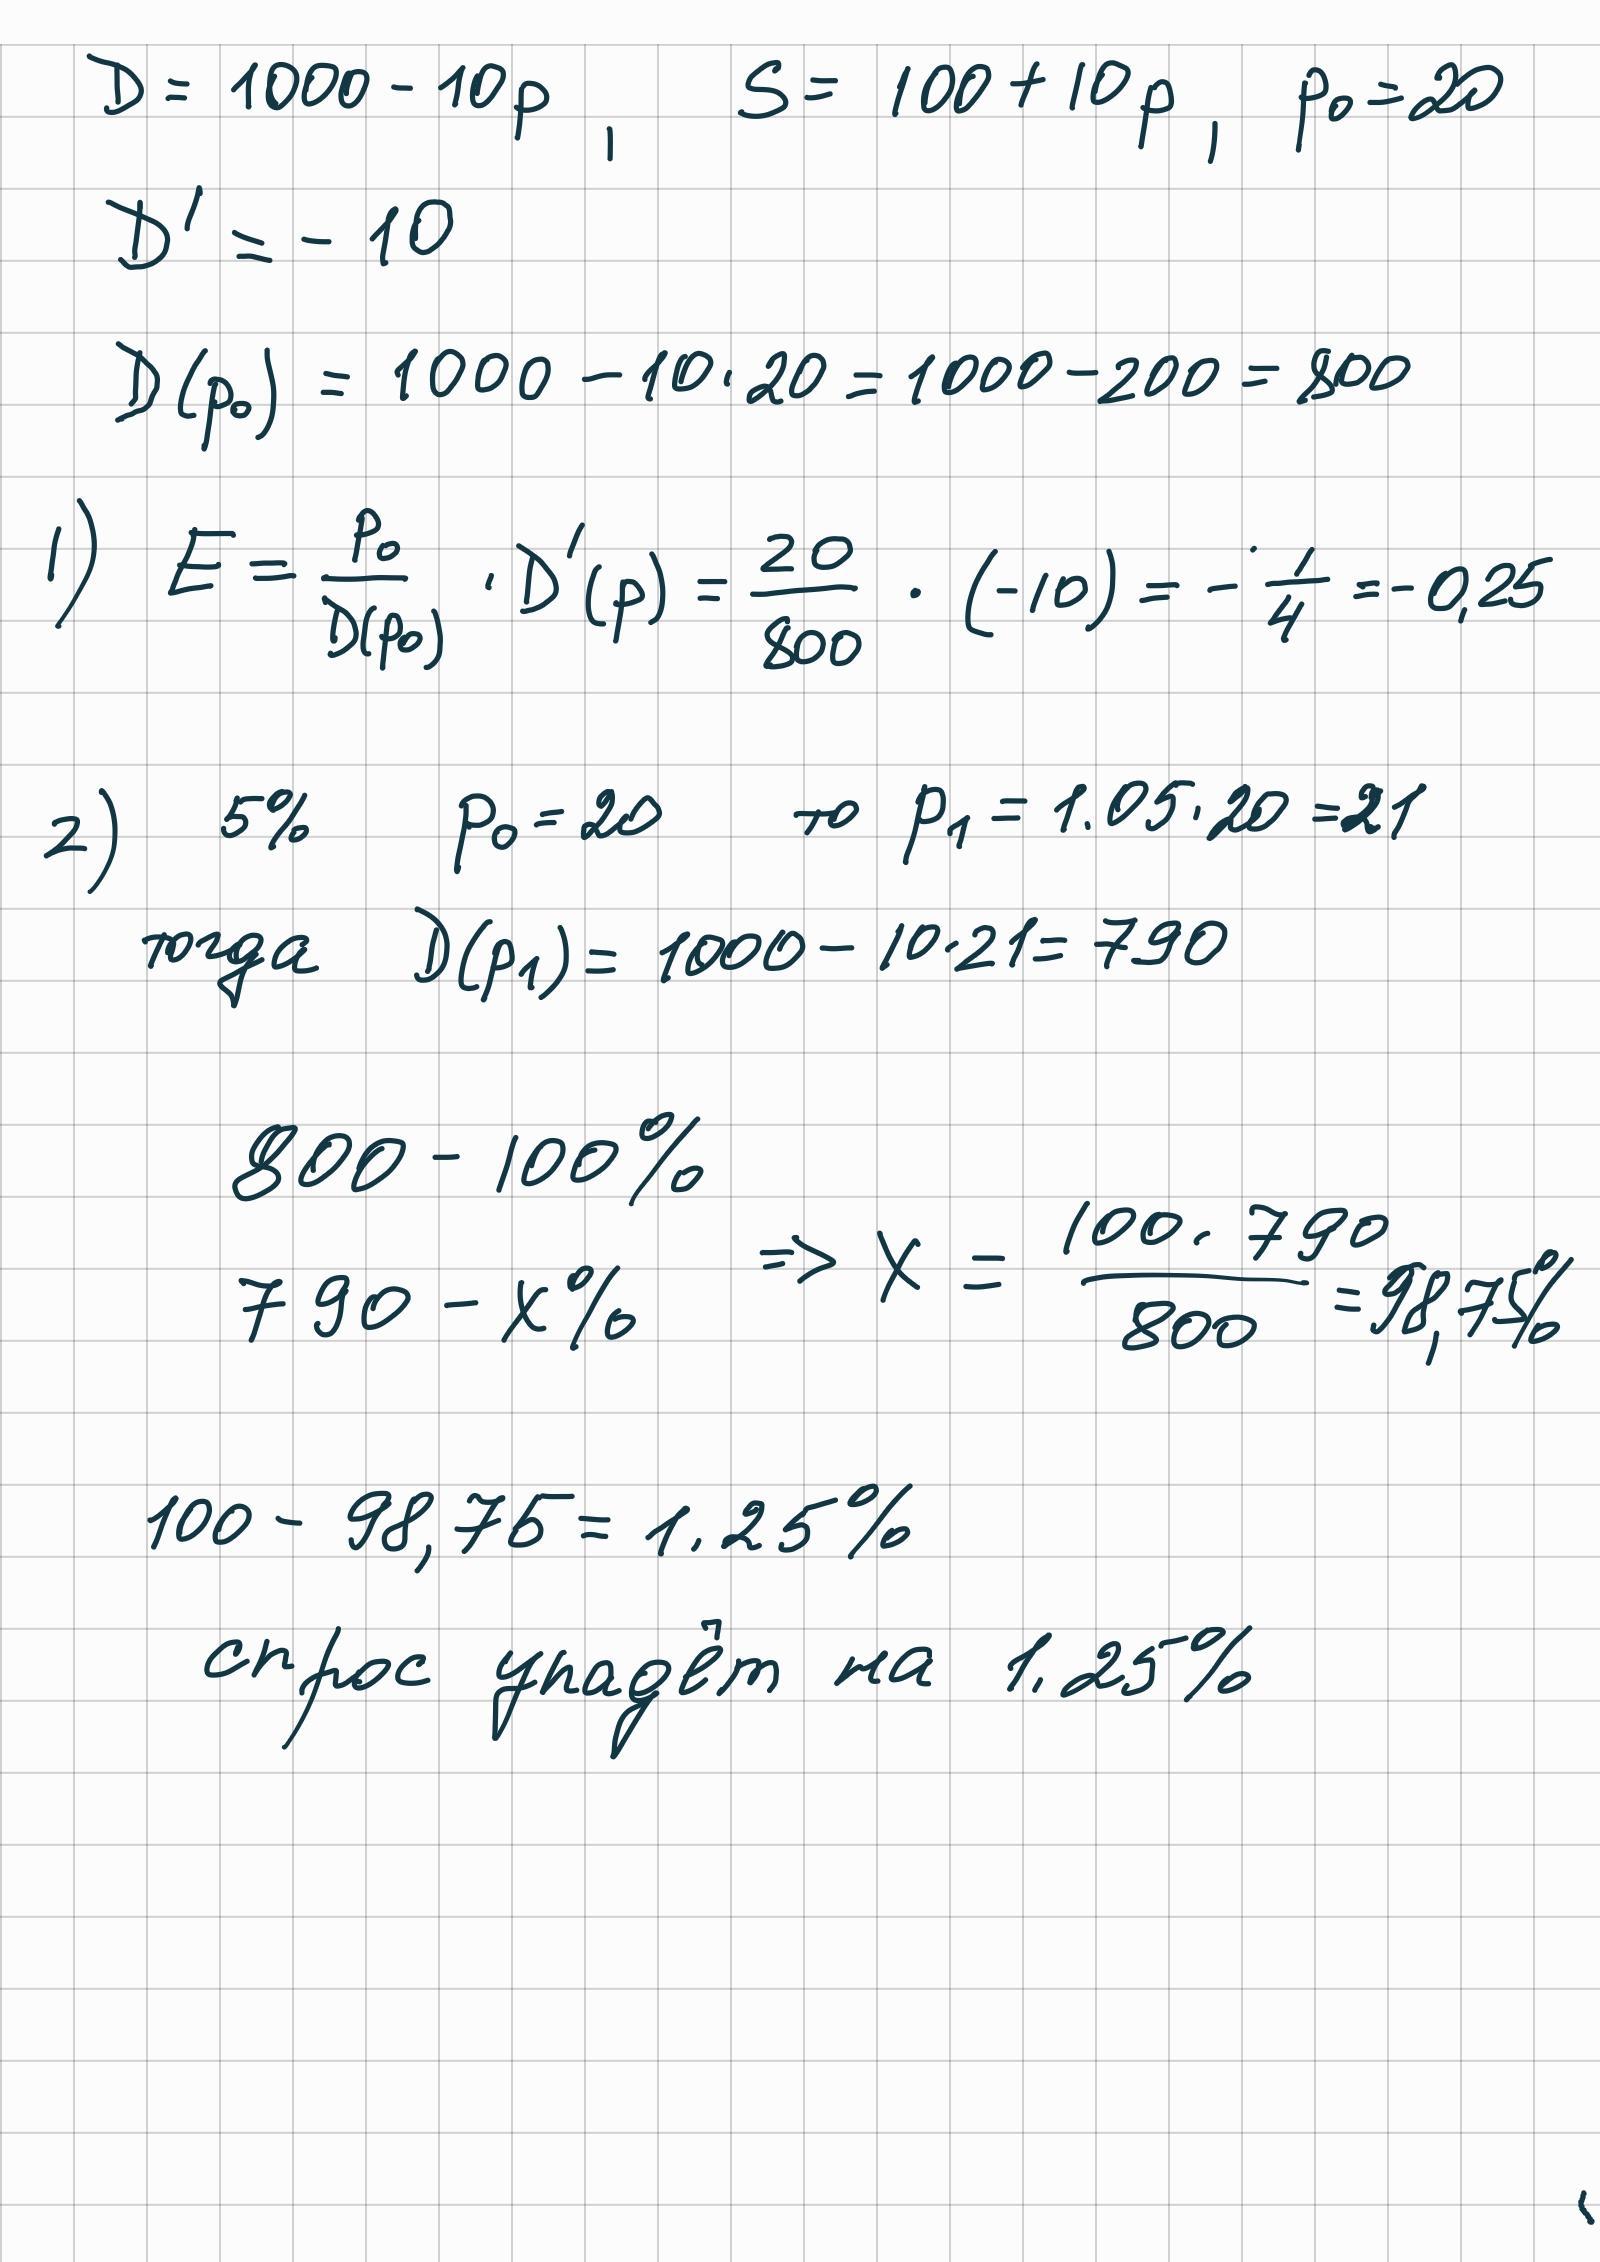 D = 1000 - 10p, S = 100 + 10p, p₀ = 20
D' = - 10
D(p₀) = 1000 - 10·20 = 1000 - 200 = 800
1) E = p₀/D(p₀) · D'(p) = 20/800 · (-10) = - 1/4 = - 0,25
2) 5% p₀ = 20 то p₁ = 1.05·20 = 21
тогда D(p₁) = 1000 - 10·21 = 790
800 - 100%
790 - x% => x = 100·790/800 = 98,75%
100 - 98,75 = 1.25%
спрос упадёт на 1.25%